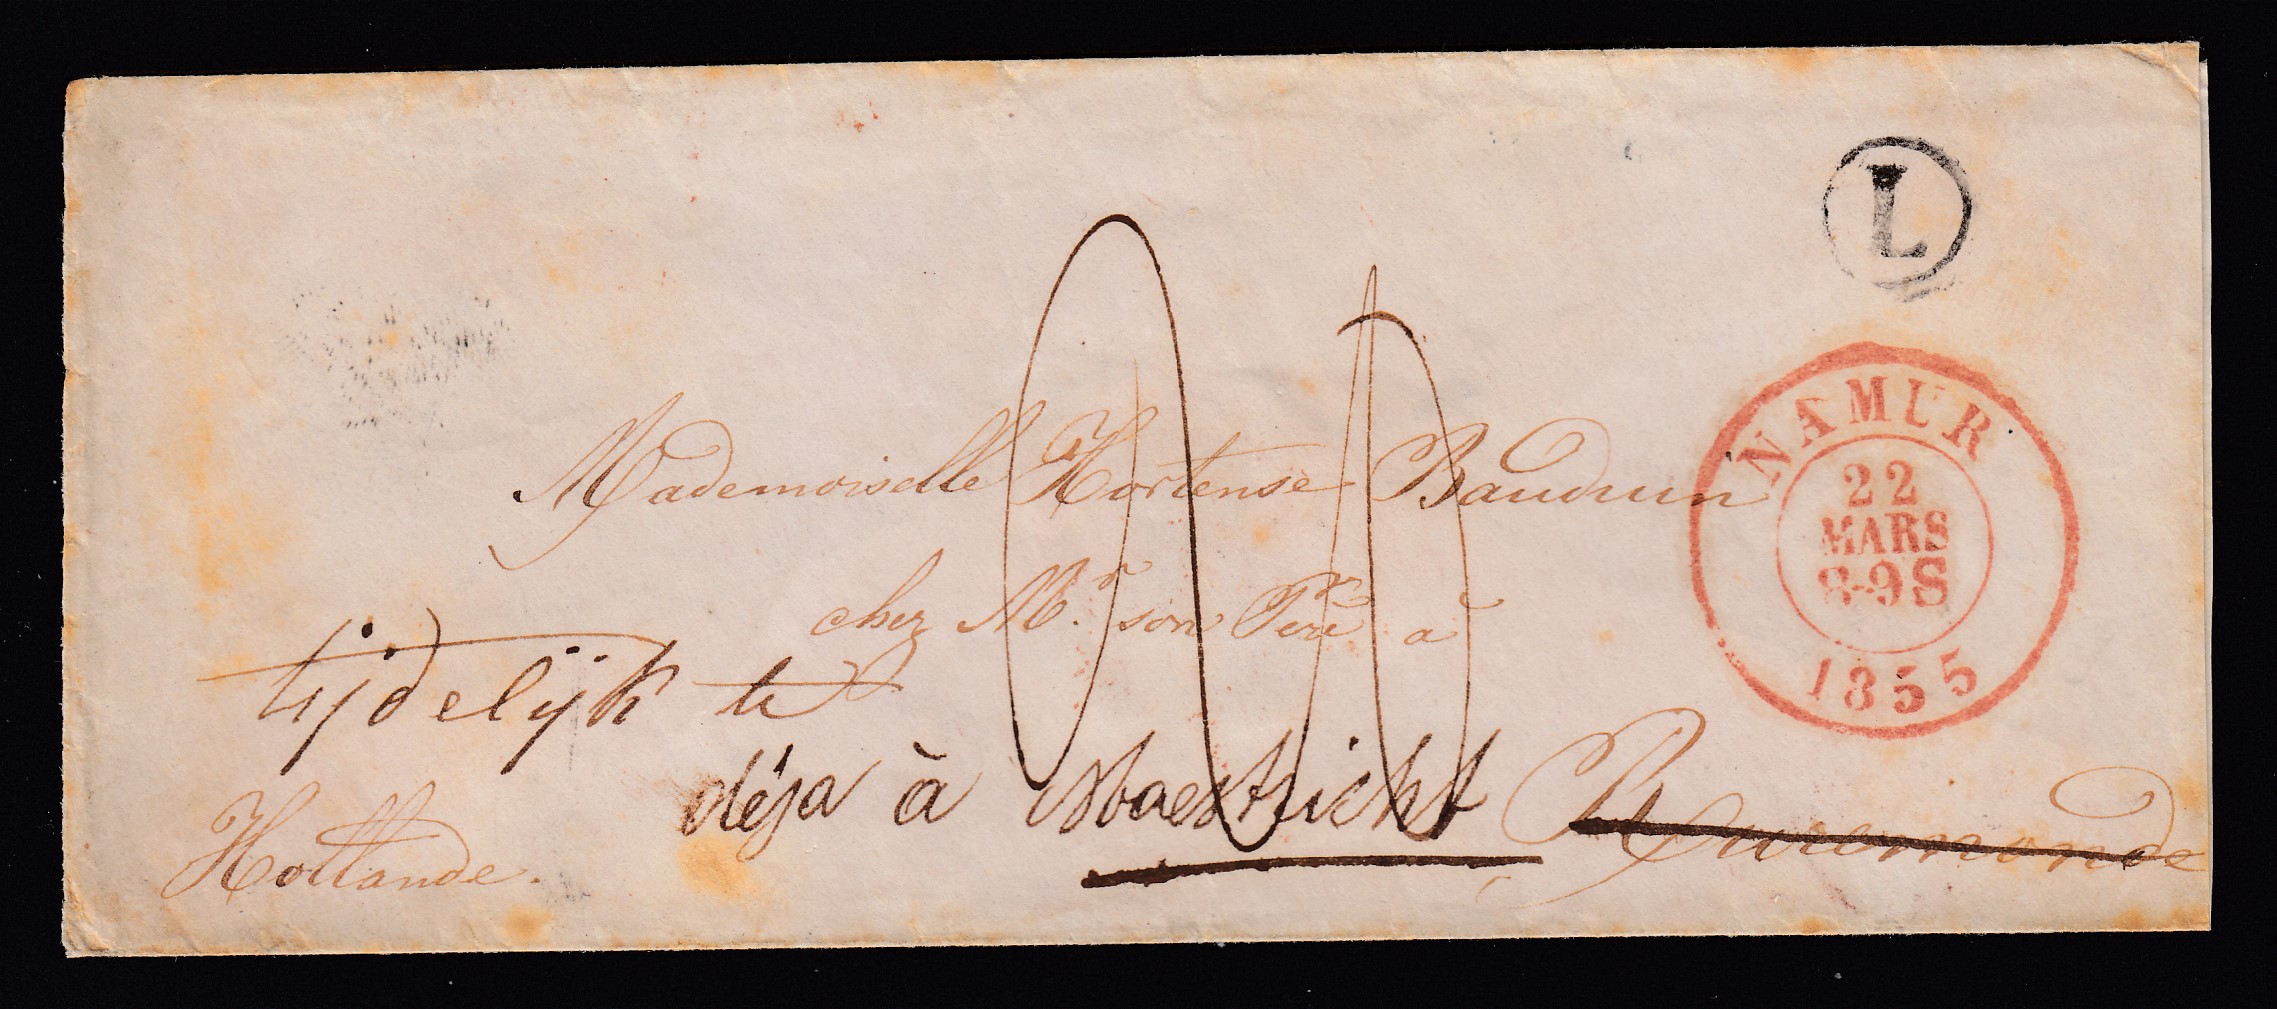 L
NAMUR
22
MARS
8-9S
1855
Mademoiselle Hortense Bauduin
chez Mr. son Père à
tijdelijk te
déja à Maestricht Ruremonde
Hollande.